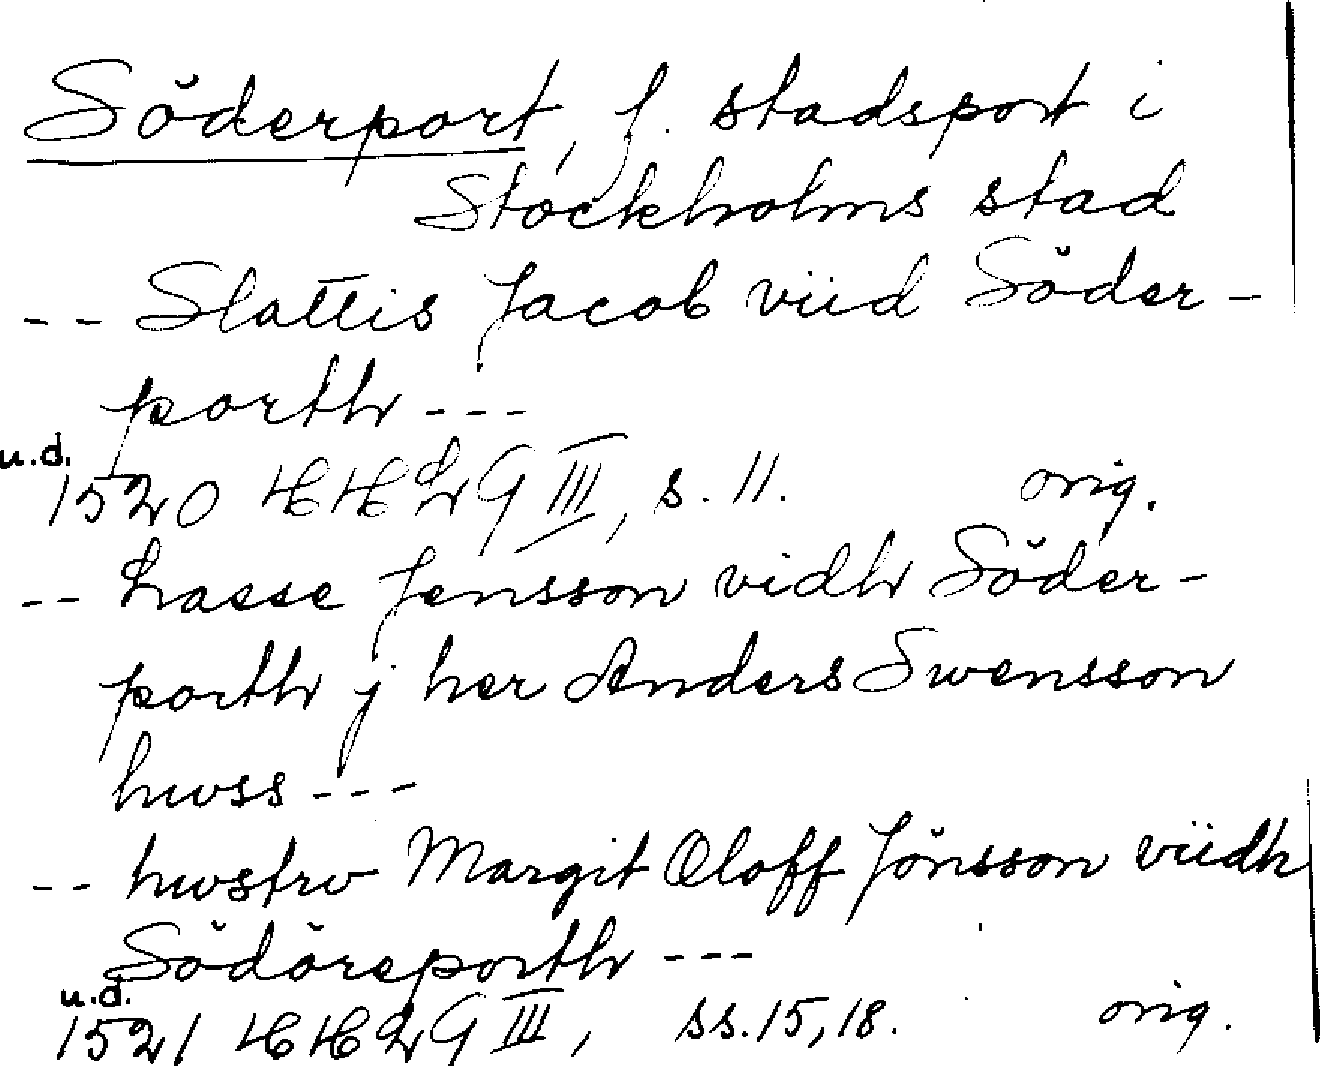 Söderport, f. stadsport i
Stockholms stad
-- Slattis Jacob viid Söder-
porth ---
u.d.
1520 HHLG III, s. 11. orig.
-- Lasse Jensson vidh Söder-
porth j her Anders Swensson
hwss ---
-- hwstrv Margit Oloff Jönsson viidh
Södöreporth ---
u.d.
1521 HHLG III, ss. 15, 18. orig.